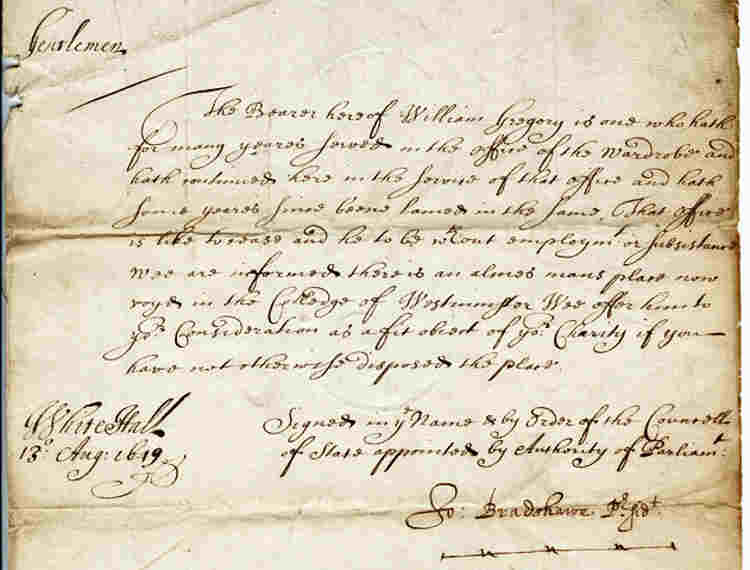 Gentlemen
The Bearer hereof William Gregory is one who hath
for many yeares served in the office of the wardrobe and
hath continued here in the service of that office and hath
some yeares since beene lamed in the same. That office
is like to cease and he to be wthout employmt or subsistance
Wee are informed there is an almes mans place now
voyd in the Colledge of Westminster Wee offer him to
yor Consideration as a fit object of yor Charity if you
have not otherwise disposed the place.
White Hall
13o Aug: 1649
Signed in ye Name & by Order of the Councell
of State appointed by Authority of Parliamt:
Jo: Bradshawe Presidt